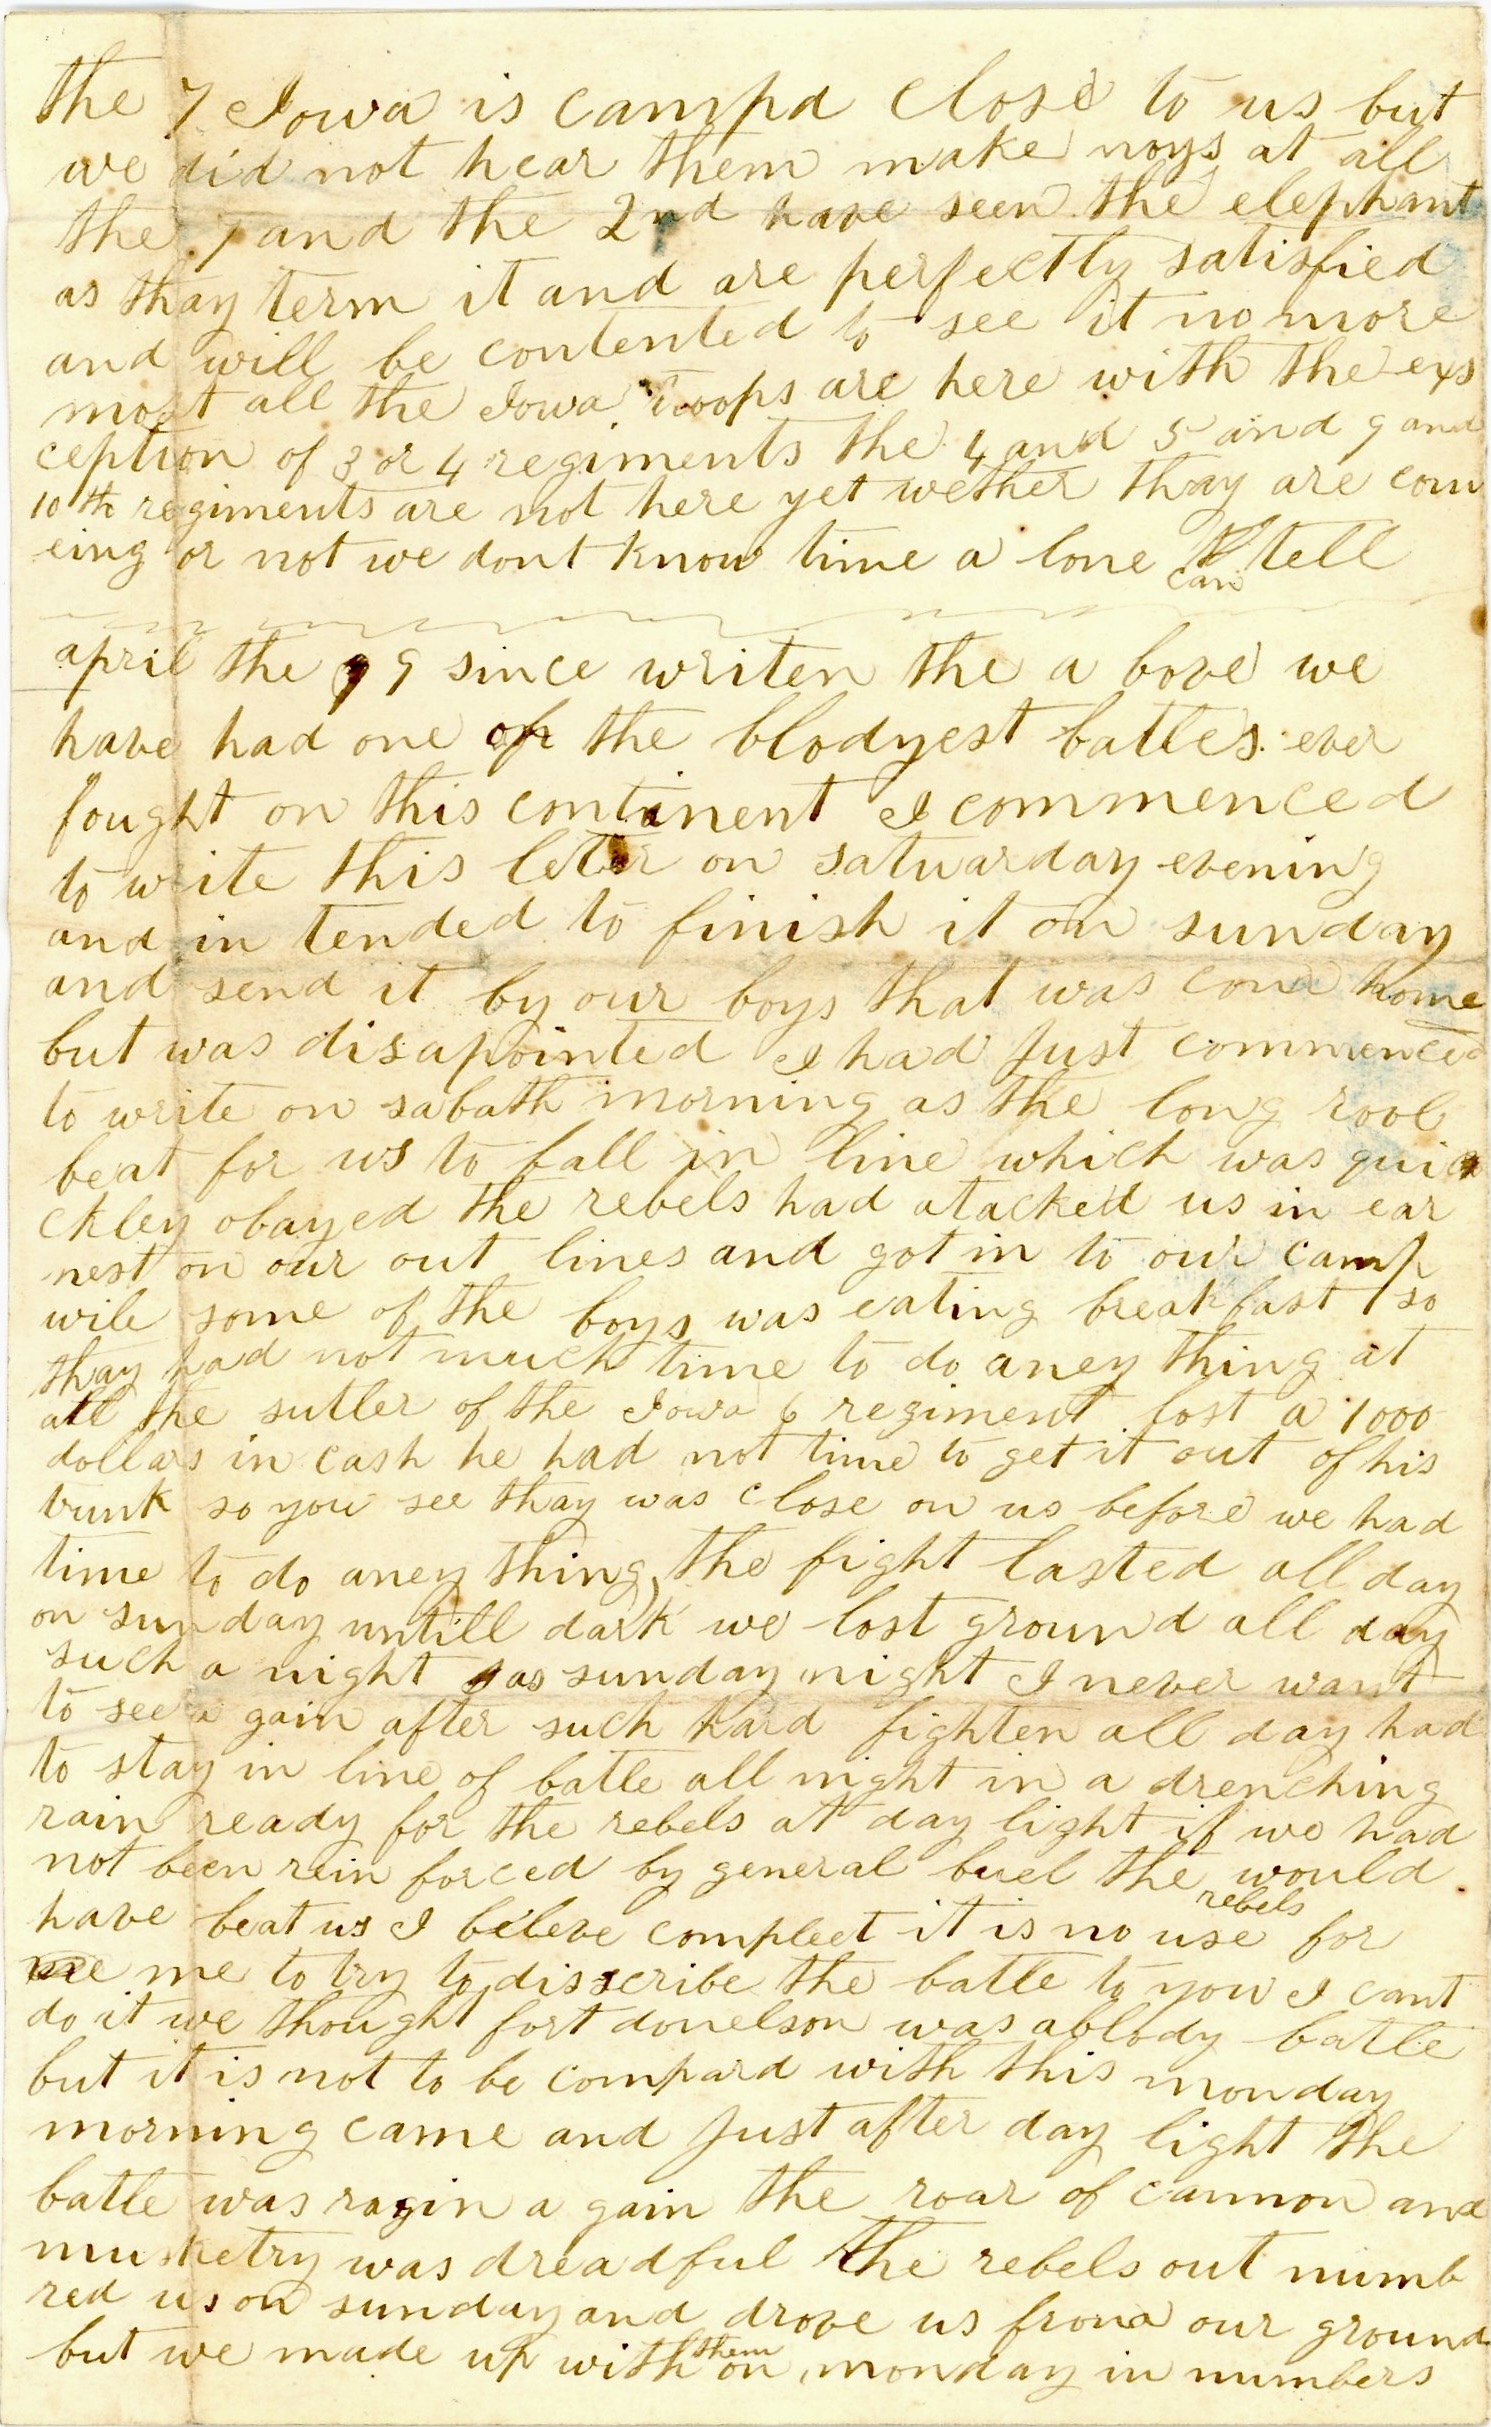 the 7 Iowa is campd close to us but
we did not hear them make noys at all
the 7 and the 2nd have seen the elephant
as thay term it and are perfectly satisfied
and will be contented to see it no more
most all the Iowa troops are here with the exs
ception of 3 or 4 regiments the 4 and 5 and 9 and
10th regiments are not here yet wether thay are com
eing or not we dont know time a lone can tell
april the 9 since writen the a bove we
have had one of the blodyest batles ever
fought on this continent I commenced
to write this leter on satuarday evening
and in tended to finish it on sunday
and send it by our boys that was come home
but was disapointed I had Just commenced
to write on sabath morning as the long rool
beat for us to fall in line which was quic
ckley obayed the rebels had atacked us in ear
nest on our out lines and got in to our camp
wile some of the boys was eating breakfast so
thay had not much time to do aney thing at
all the sutler of the Iowa 6 regiment lost a 1000
dollars in cash he had not time to get it out of his
trunk so you see thay was close on us before we had
time to do aney thing, the fight lasted all day
on sunday untill dark we lost ground all day
such a night as sunday night I never want
to see a gain after such hard fighten all day had
to stay in line of batle all night in a drenching
rain ready for the rebels at day light if we had
not been rein forced by general buel the rebels would
have beat us I beleve compleet it is no use for
me to try to disscribe the batle to you I cant
do it we thought fort donelson was a blody batle
but it is not to be compard with this monday
morning came and Just after day light the
batle was ragin a gain the roar of cannon and
musketry was dreadful the rebels out numb
red us on sunday and drove us from our ground
but we made up with them on monday in numbers